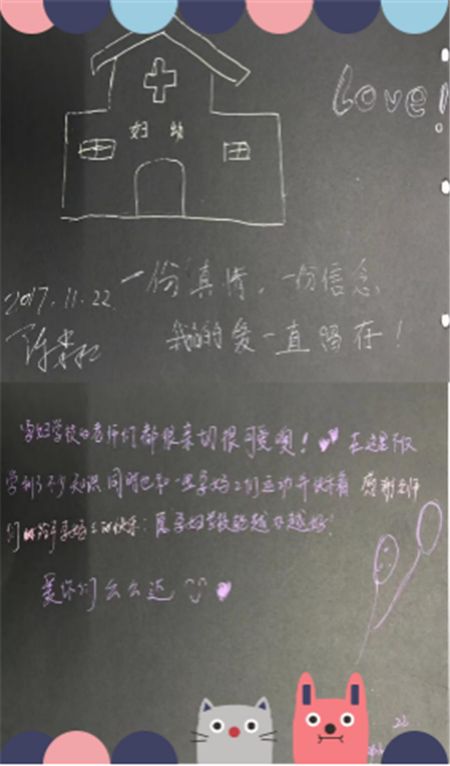 Love!
妇幼
一份真情,一份信念
2017.11.22.
我的爱一直都在!
孕妇学校的老师们都很亲切很可爱噢! 在这里不仅
学到了不少知识 同时也和一些孕妈妈们运动并快乐着 感谢老师
们
孕妇学校越办越好!
爱你们么么达
22